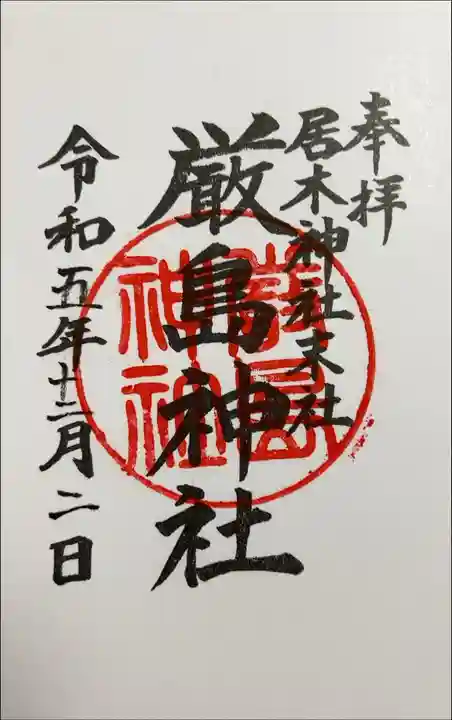 奉拝
居木神社末社
厳島神社
令和五年十二月二日
厳島
神社